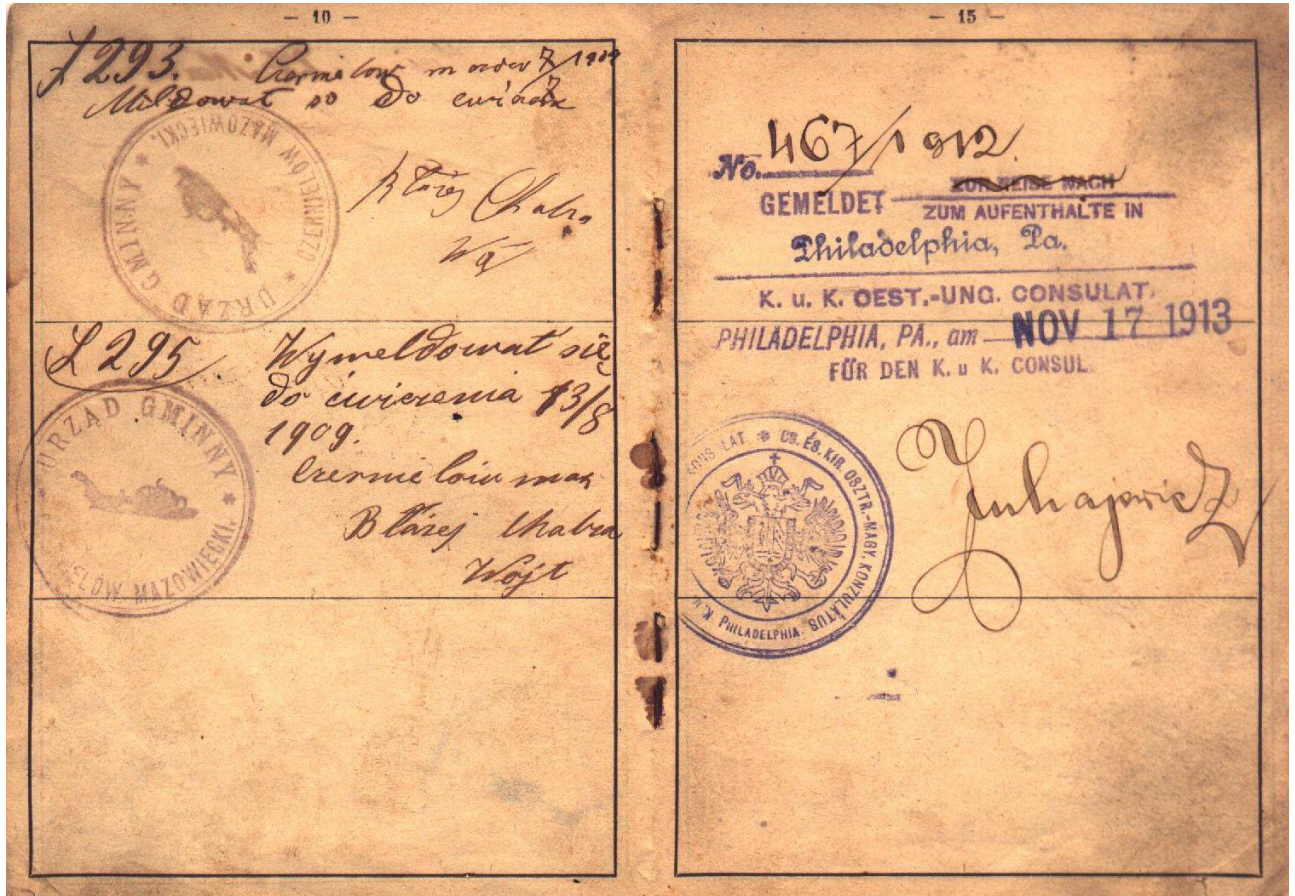 — 10 —
293.
Meldował do
URZĄD GMINNY * CZERNIELÓW MAZOWIECKI. *
Błażej Chabza
L 295
Wymeldował się
do ćwiczenia 13/8
1909.
Czernielow maz
Błażej Chabza
Wójt
URZĄD GMINNY * MAZOWIECKI.
— 15 —
No. 467/1912.
GEMELDET ZUR REISE NACH
ZUM AUFENTHALTE IN
Philadelphia, Pa.
K. u. K. OEST.-UNG. CONSULAT.
PHILADELPHIA, PA., am NOV 17 1913
FÜR DEN K. u K. CONSUL.
CS. ÉS. KIR. OSZTR.-MAGY. KONZULÁTUS PHILADELPHIA.